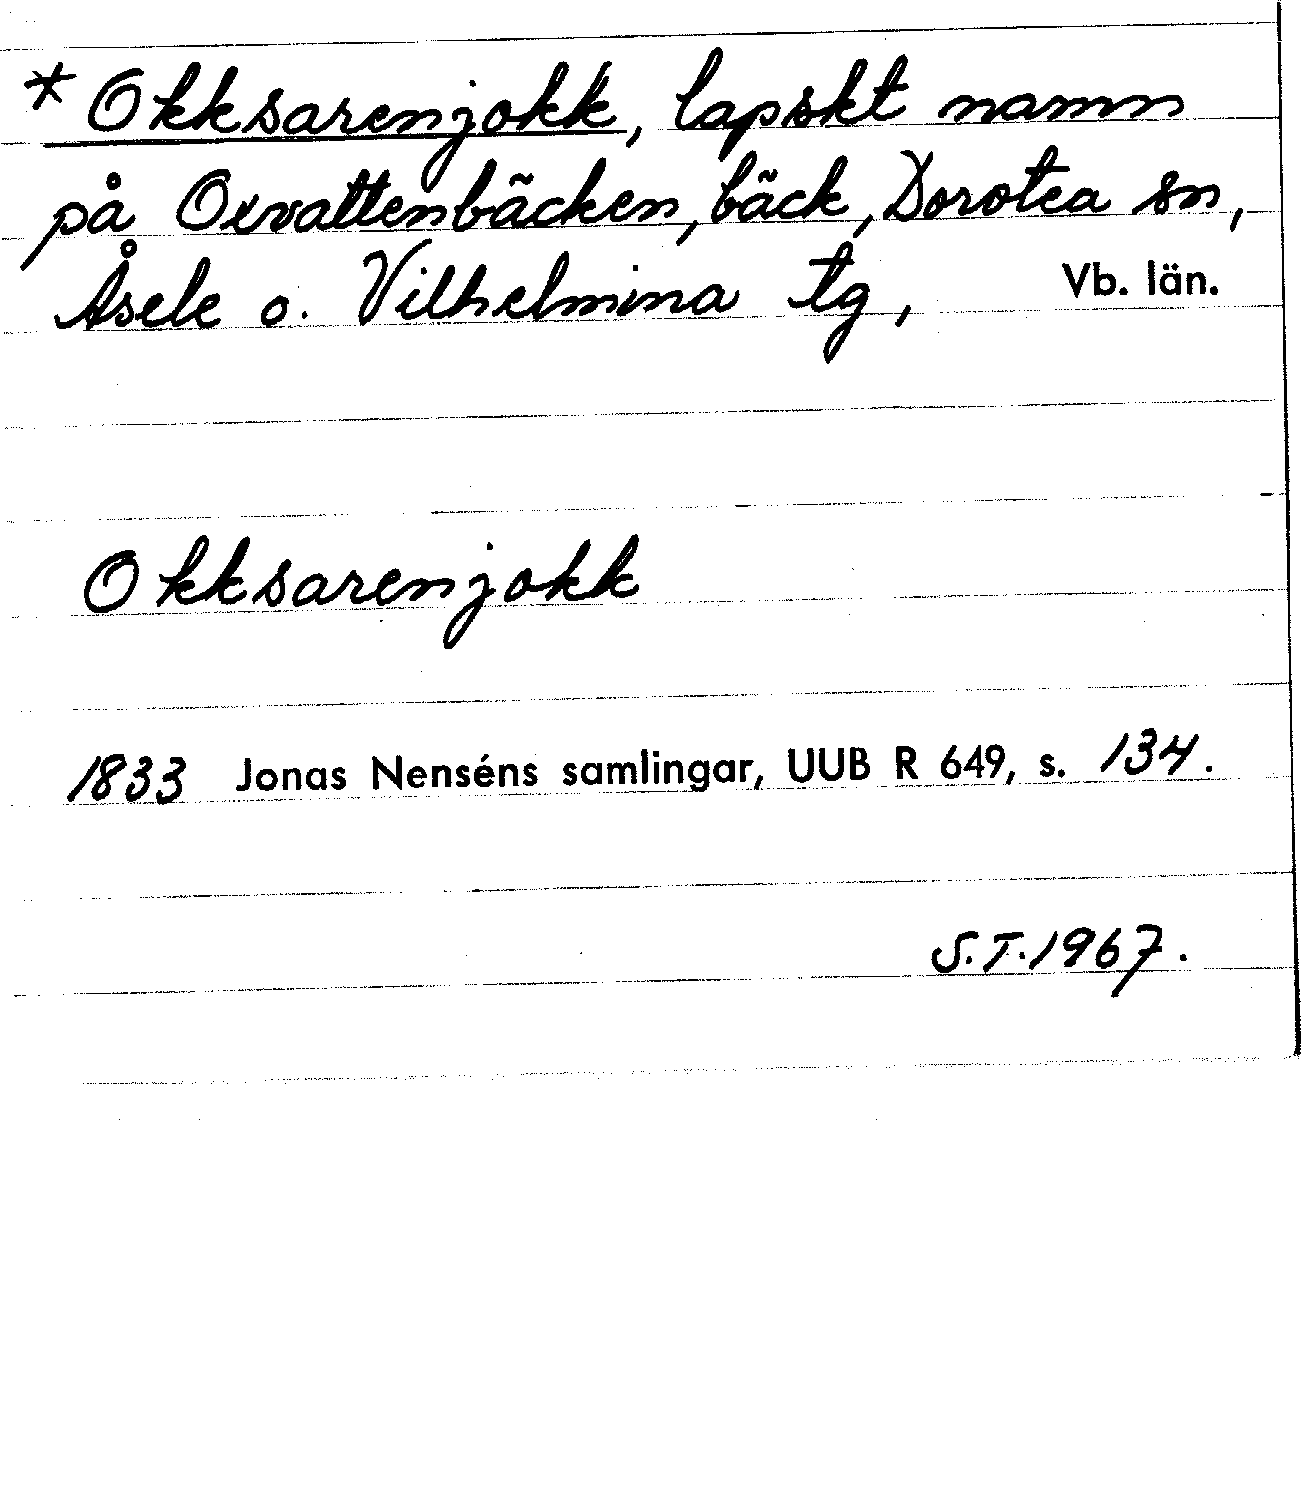 * Okksarenjokk, lapskt namn
på Oxvattenbäcken, bäck, Dorotea sn,
Åsele o. Vilhelmina tg, Vb. län.
Okksarenjokk
1833 Jonas Nenséns samlingar, UUB R 649, s. 134.
S.T. 1967.